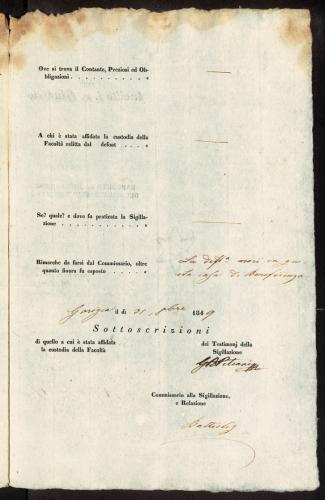 Ove si trova il Contante, Preziosi ed Ob-
bligazioni . . . . . . . . . . «
A chi è stata affidata la custodia della
Facoltà relitta dal defont . . . . «
Se? quale? e dove fu praticata la Sigilla-
zione . . . . . . . . . . . . «
Rimarche da farsi dal Commissario, oltre
quanto finora fu esposto . . . . . «
La Diff.ª morì in que
sta casa di Beneficenza
Gorizia il dì 31 9bre 1849
Sottoscrizioni
di quello a cui è stata affidata
la custodia della Facoltà
dei Testimonj della
Sigillazione
Commissario alla Sigillazione,
e Relazione